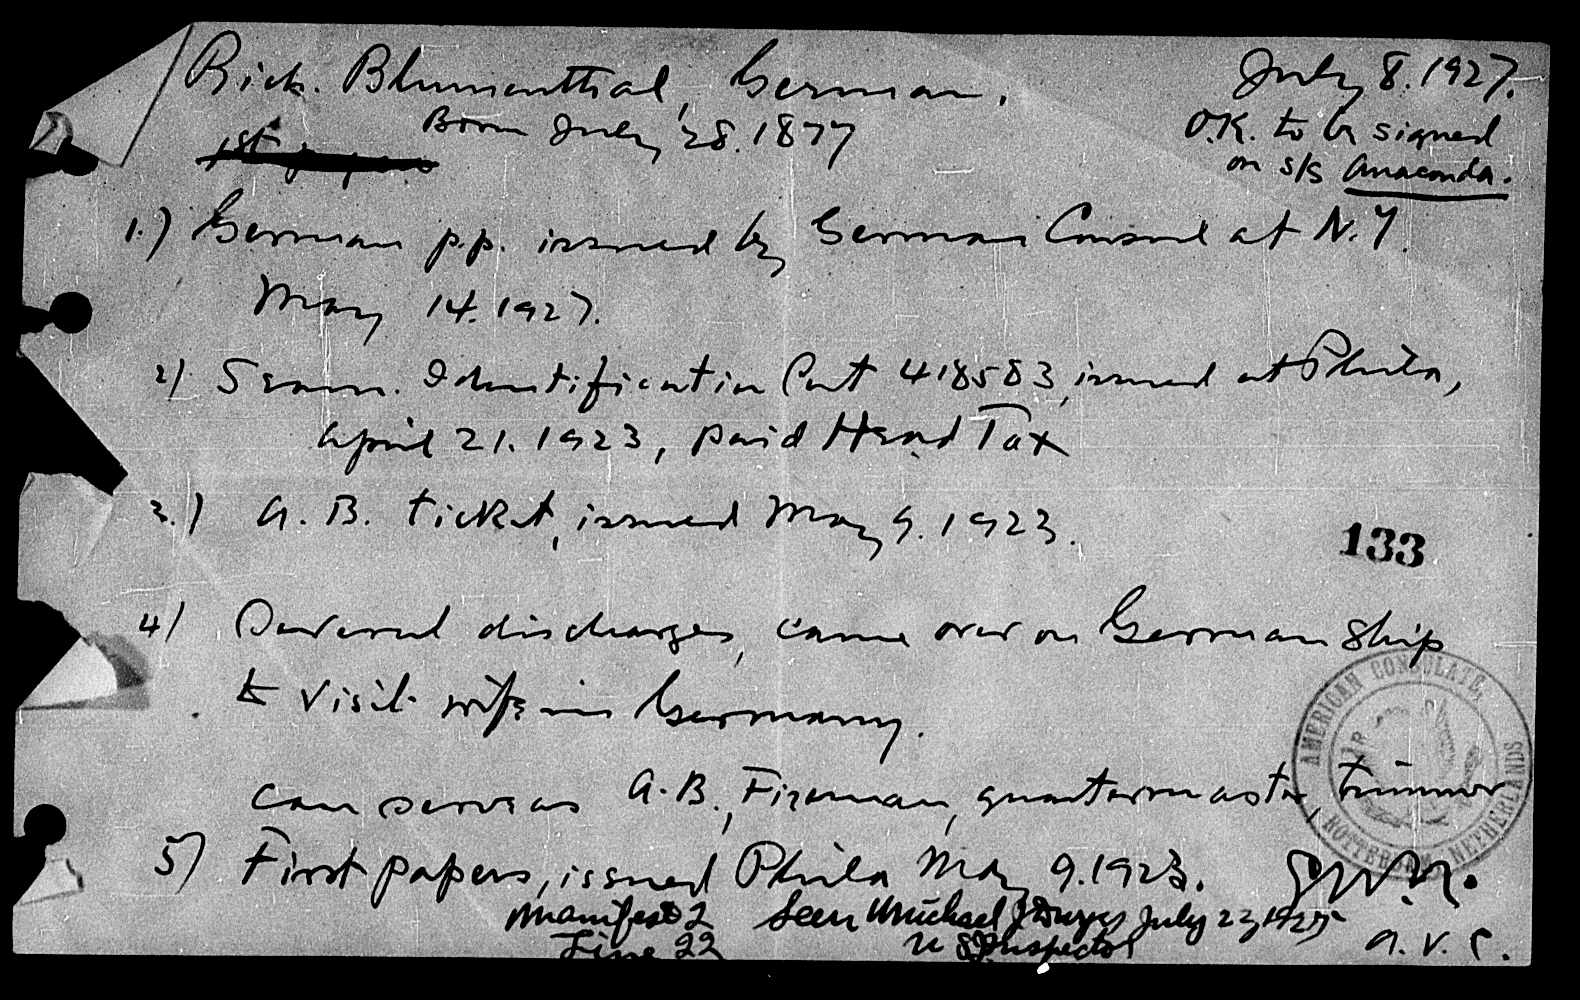 Rich. Blumenthal, German.
July 8. 1927.
Born July 28. 1877
O.K. to be signed
1st papers
on s/s Anaconda.
1.) German p.p. issued by German Consul at N.Y.
May 14. 1927.
2) Seam. Identification Cert 418583, issued at Phila,
April 21. 1923, paid Head Tax
3.) A.B. ticket, issued May 9. 1923.
133
4) Several discharges, came over on German ship
to visit wife in Germany.
can serve as A.B., Fireman, quartermaster, trimmer
5) First papers, issued Phila May 9. 1923.
Manifest 2 Seen Michael J July 23, 1927
Line 22 U S Inspector
A. V. C.
AMERICAN CONSULATE, ROTTERDAM NETHERLANDS